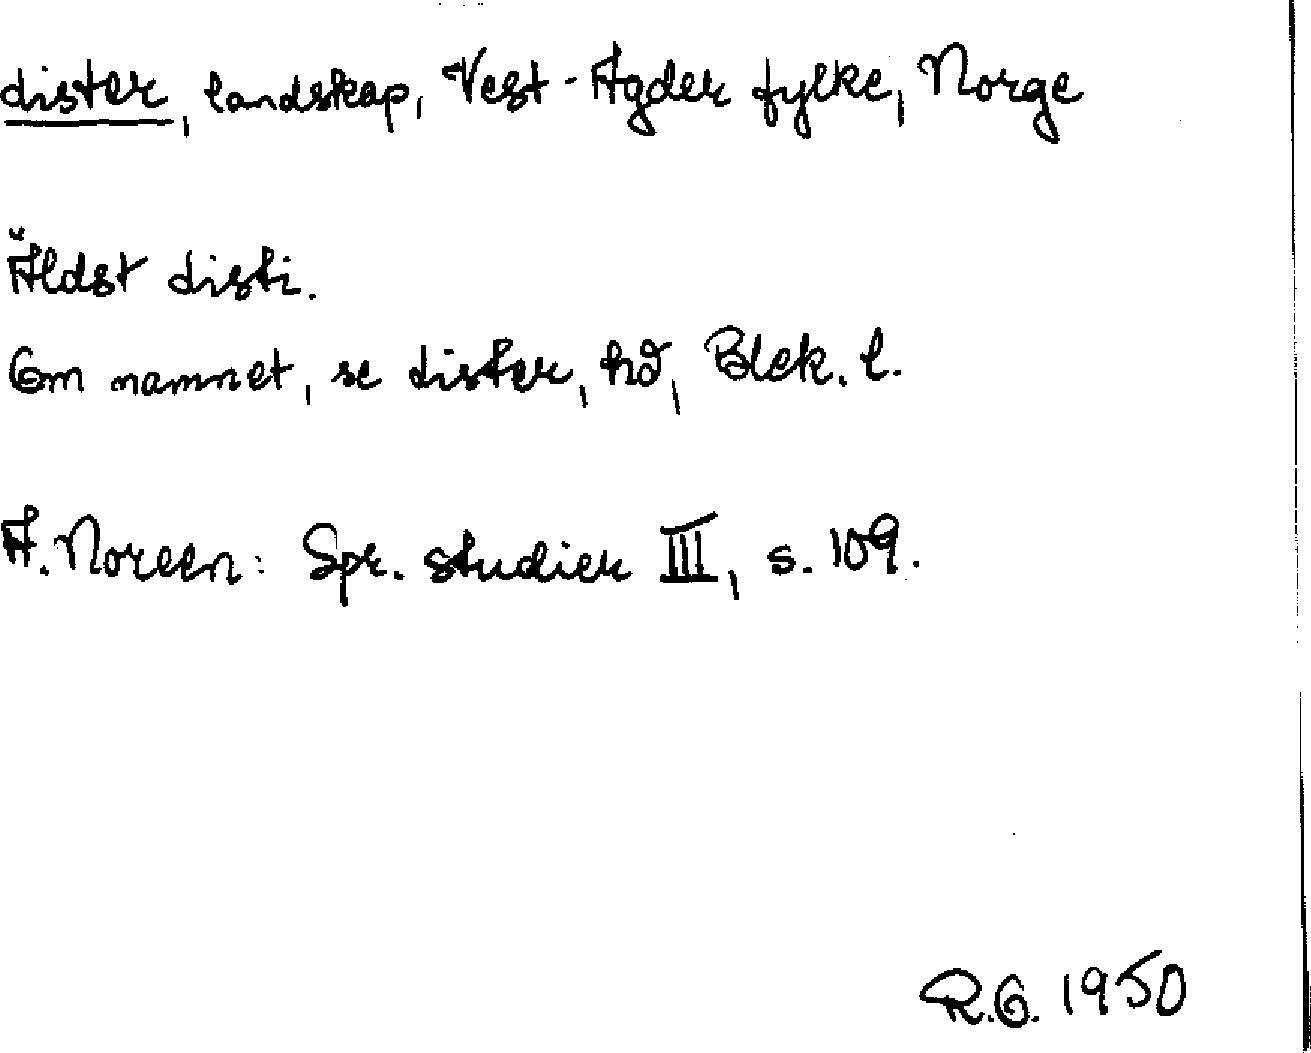 Lister, landskap, Vest-Agder fylke, Norge
Äldst Listi.
Om namnet, se Lister, hd, Blek. l.
A. Noreen: Spr. studier III, s. 109.
R.G. 1950